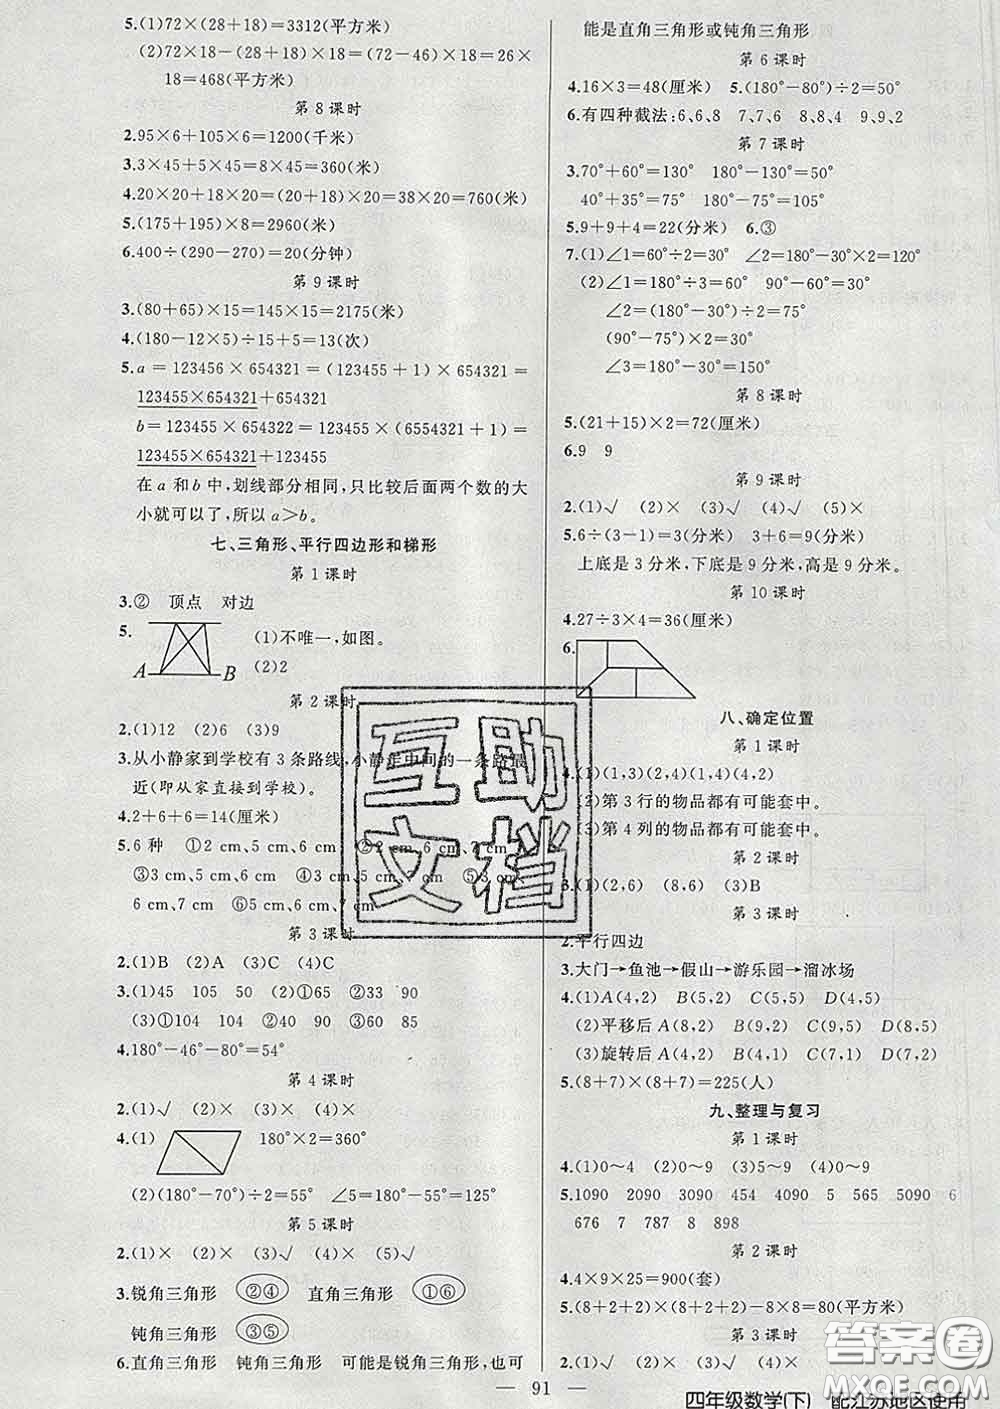 5.(1)72×(28+18)=3312(平方米)
(2)72×18-(28+18)×18=(72-46)×18=26×
18=468(平方米)
第 8 课时
2.95×6+105×6=1200(千米)
3.3×45+5×45=8×45=360(米)
4.20×20+18×20=(20+18)×20=38×20=760(米)
5.(175+195)×8=2960(米)
6.400÷(290-270)=20(分钟)
第 9 课时
3.(80+65)×15=145×15=2175(米)
4.(180-12×5)÷15+5=13(次)
5.a=123456×654321=(123455+1)×654321=
123455×654321+654321
b=123455×654322=123455×(6554321+1)=
123455×654321+123455
在 a 和 b 中,划线部分相同,只比较后面两个数的大
小就可以了,所以 a>b。
七、三角形、平行四边形和梯形
第 1 课时
3.② 顶点 对边
5.
A B
(1)不唯一,如图。
(2)2
第 2 课时
2.(1)12 (2)6 (3)9
3.从小静家到学校有 3 条路线,小静走中间的一条路最
近(即从家直接到学校)。
4.2+6+6=14(厘米)
5.6 种 ①2 cm、5 cm、6 cm ②2 cm、6 cm、7 cm
③3 cm、5 cm、6 cm ④3 cm、5 cm、7 cm ⑤3 cm、
6 cm、7 cm ⑥5 cm、6 cm、7 cm
第 3 课时
2.(1)B (2)A (3)C (4)C
3.(1)45 105 50 (2)①65 ②33 90
(3)①104 104 ②40 90 ③60 85
4.180°-46°-80°=54°
第 4 课时
2.(1)√ (2)× (3)× (4)×
4.(1) 180°×2=360°
(2)(180°-70°)÷2=55° ∠5=180°-55°=125°
第 5 课时
2.(1)× (2)× (3)√ (4)× (5)√
3.锐角三角形 ②④ 直角三角形 ①⑥
钝角三角形 ③⑤
6.直角三角形 钝角三角形 可能是锐角三角形,也可
能是直角三角形或钝角三角形
第 6 课时
4.16×3=48(厘米) 5.(180°-80°)÷2=50°
6.有四种截法:6、6、8 7、7、6 8、8、4 9、9、2
第 7 课时
3.70°+60°=130° 180°-130°=50°
40°+35°=75° 180°-75°=105°
5.9+9+4=22(分米) 6.③
7.(1)∠1=60°÷2=30° ∠2=180°-30°×2=120°
(2)∠1=180°÷3=60° 90°-60°=30°
∠2=(180°-30°)÷2=75°
(90°-75°)×2=30°
∠3=180°-30°=150°
第 8 课时
5.(21+15)×2=72(厘米)
6.9 9
第 9 课时
2.(1)√ (2)× (3)√ (4)√ (5)×
5.6÷(3-1)=3(分米) 3+6=9(分米)
上底是 3 分米,下底是 9 分米,高是 9 分米。
第 10 课时
4.27÷3×4=36(厘米)
6.
八、确定位置
第 1 课时
4.(1)(1,3)(2,4)(4,1)(4,2)
(2)第 3 行的物品都有可能套中。
(3)第 4 列的物品都有可能套中。
第 2 课时
3.(1)(2,6) (8,6) (3)B
第 3 课时
2.平行四边
3.大门→鱼池→假山→游乐园→溜冰场
4.(1)A(4,2) B(5,2) C(5,5) D(4,5)
(2)平移后 A(8,2) B(9,2) C(9,5) D(8,5)
(3)旋转后 A(4,2) B(4,1) C(7,1) D(7,2)
5.(8+7)×(8+7)=225(人)
九、整理与复习
第 1 课时
4.(1)0~4 (2)0~9 (3)5~9 (4)0~9
5.1090 2090 3090 454 4090 5 565 5090 6
676 7 787 8 898
第 2 课时
4.4×9×25=900(套)
5.(8+2+2)×(8+2+2)-8×8=80(平方米)
第 3 课时
2.(1)√ (2)× (3)√ (4)×
— 91 —
四年级数学(下) 配江苏地区使用
互助
文档
答案圈
MXQE.COM